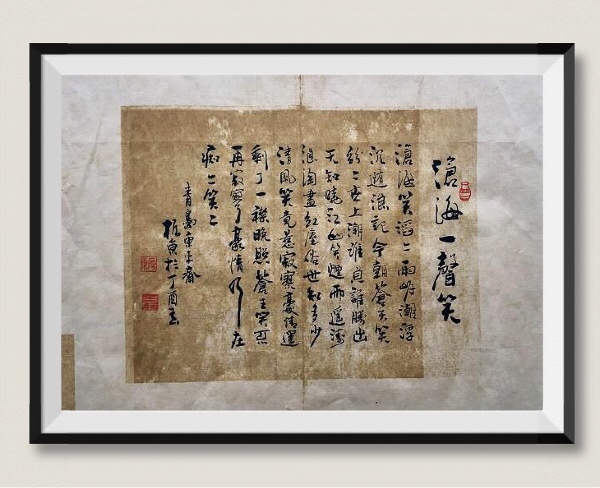 滄海一聲笑
滄海笑滔〻兩岸潮浮
沉隨浪記今朝蒼天笑
紛〻世上潮誰負誰勝出
天知曉江山笑煙雨遙濤
浪淘盡紅塵俗世知多少
清風笑竟惹寂寥豪情還
剩了一襟晚照蒼生笑不
再寂寥豪情仍在
痴〻笑〻
青島東平齋
於丁酉